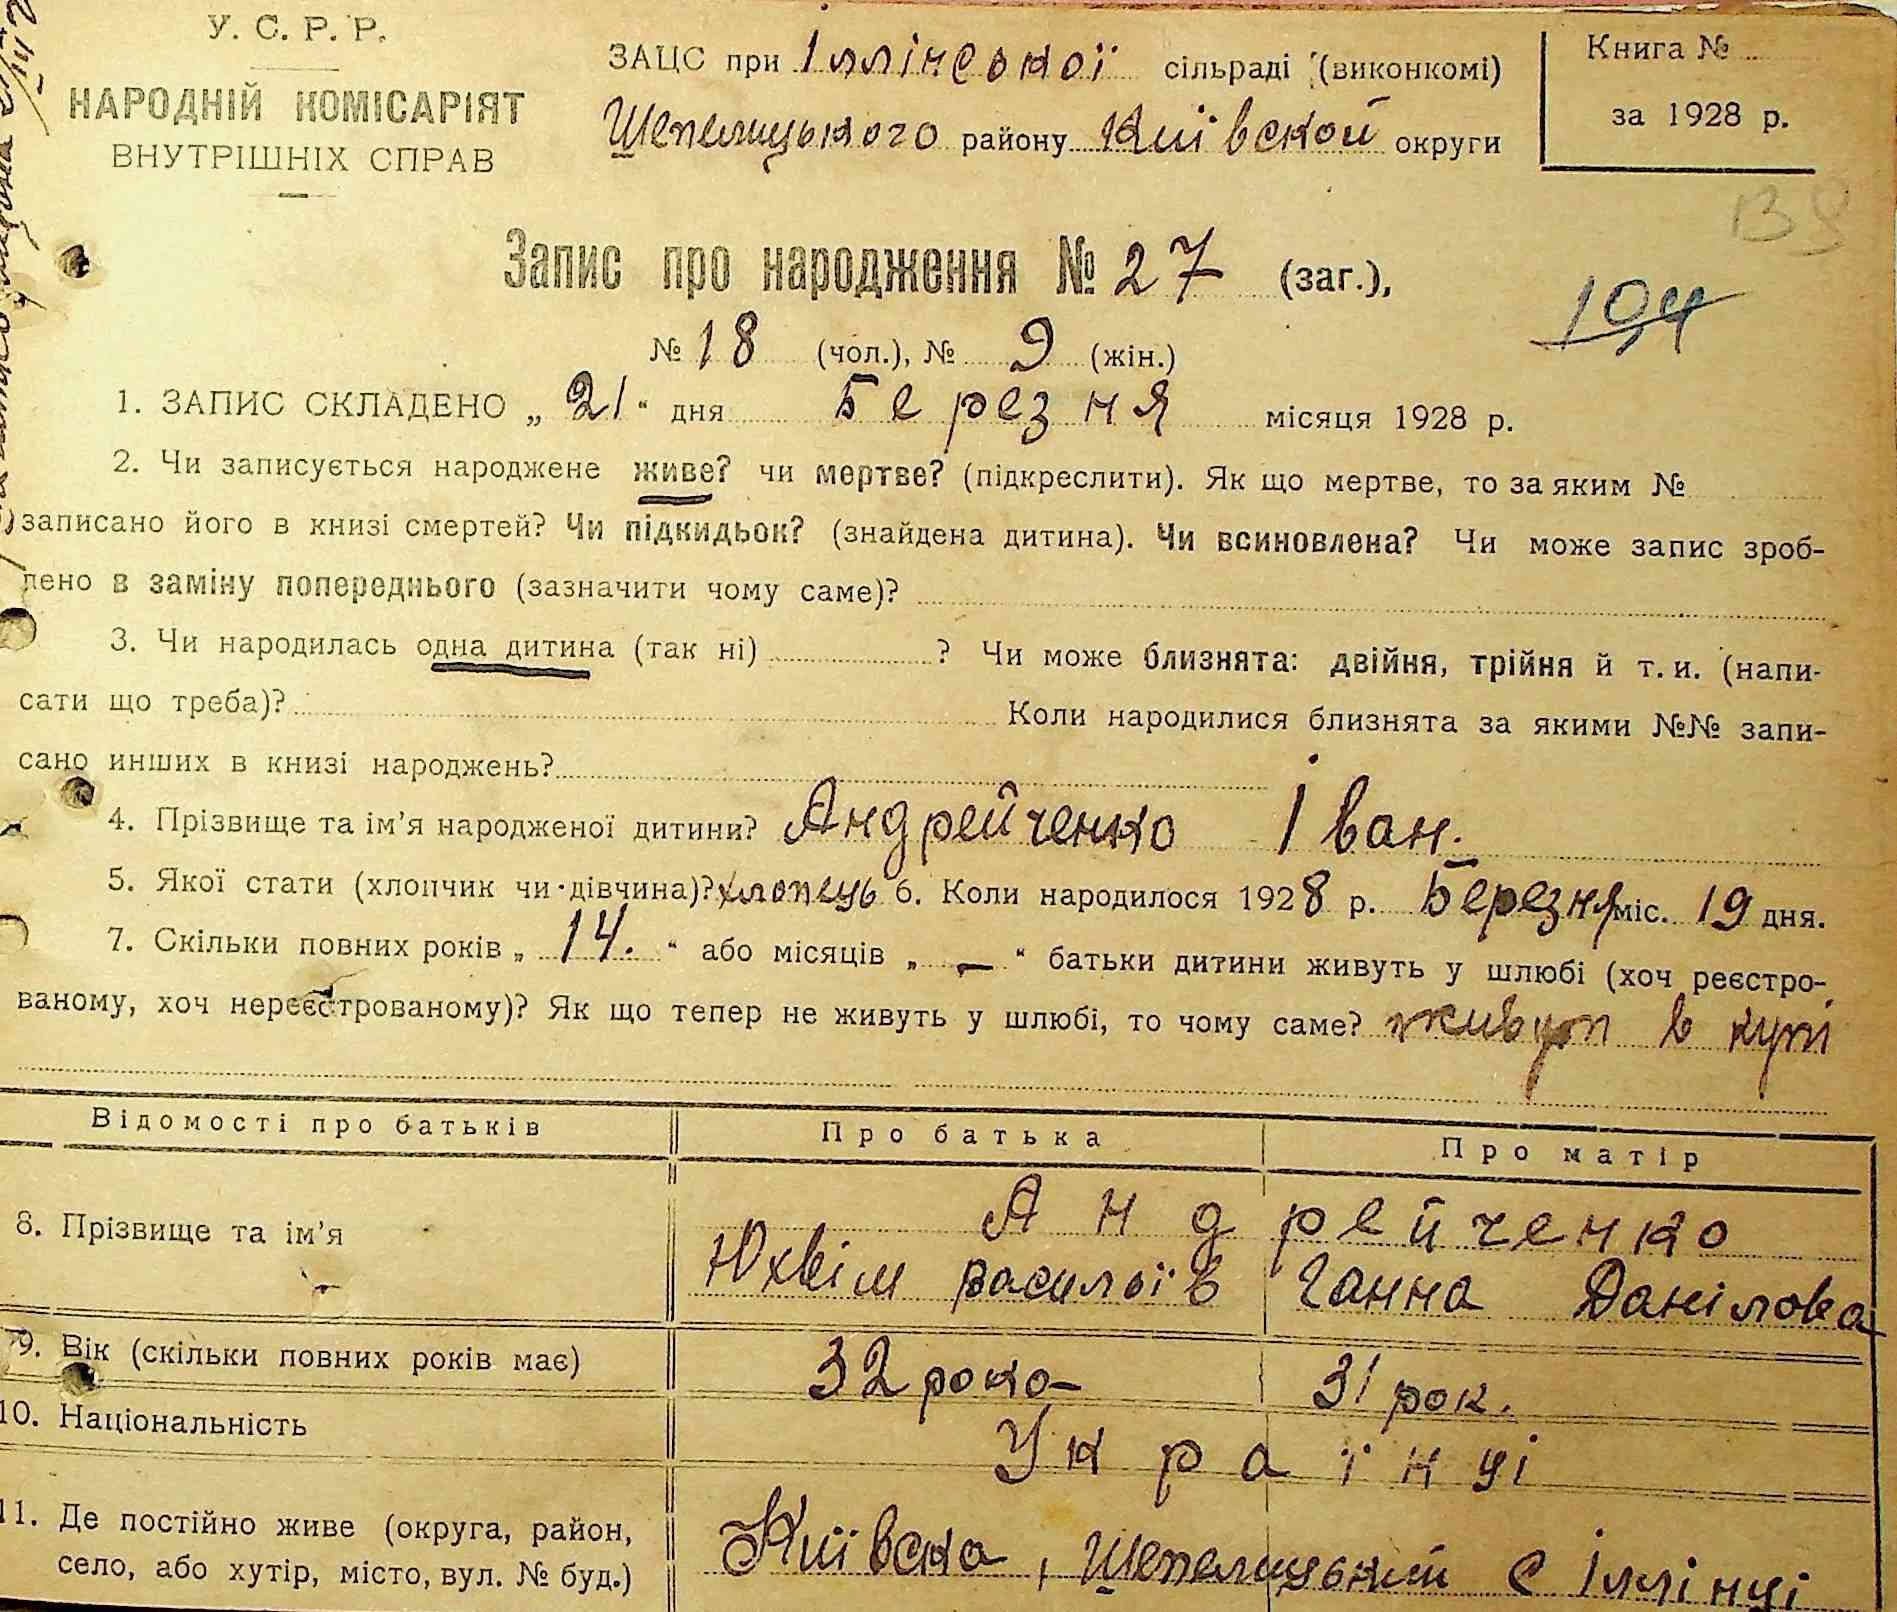 У. С. Р. Р.
НАРОДНІЙ КОМІСАРІЯТ
ВНУТРІШНІХ СПРАВ
ЗАЦС при Іллінської сільраді (виконкомі)
Шепелицького району Київской округи
Книга №
за 1928 р.
Запис про народження № 27 (заг.),
194
№ 18 (чол.), № 9 (жін.)
1. ЗАПИС СКЛАДЕНО „ 21 “ дня Березня місяця 1928 р.
2. Чи записується народжене живе? чи мертве? (підкреслити). Як що мертве, то за яким №
записано його в книзі смертей? Чи підкидьок? (знайдена дитина). Чи всиновлена? Чи може запис зроб-
лено в заміну попереднього (зазначити чому саме)?
3. Чи народилась одна дитина (так ні) ? Чи може близнята: двійня, трійня й т. и. (напи-
сати що треба)? Коли народилися близнята за якими №№ запи-
сано инших в книзі народжень?
4. Прізвище та ім’я народженої дитини? Андрейченко Іван.
5. Якої стати (хлопчик чи дівчина)? хлопець 6. Коли народилося 1928 р. Березня міс. 19 дня.
7. Скільки повних років „ 14. “ або місяців „ — “ батьки дитини живуть у шлюбі (хоч реєстро-
ваному, хоч нереєстрованому)? Як що тепер не живуть у шлюбі, то чому саме? живут в купі
Відомості про батьків Про батька Про матір
8. Прізвище та ім’я Андрейченко
Юхвім васильїв Ганна Данілова
9. Вік (скільки повних років має) 32 роко- 31 рок.
10. Національність Українці
11. Де постійно живе (округа, район, Київска, Шепелицький с Іллінці
село, або хутір, місто, вул. № буд.)